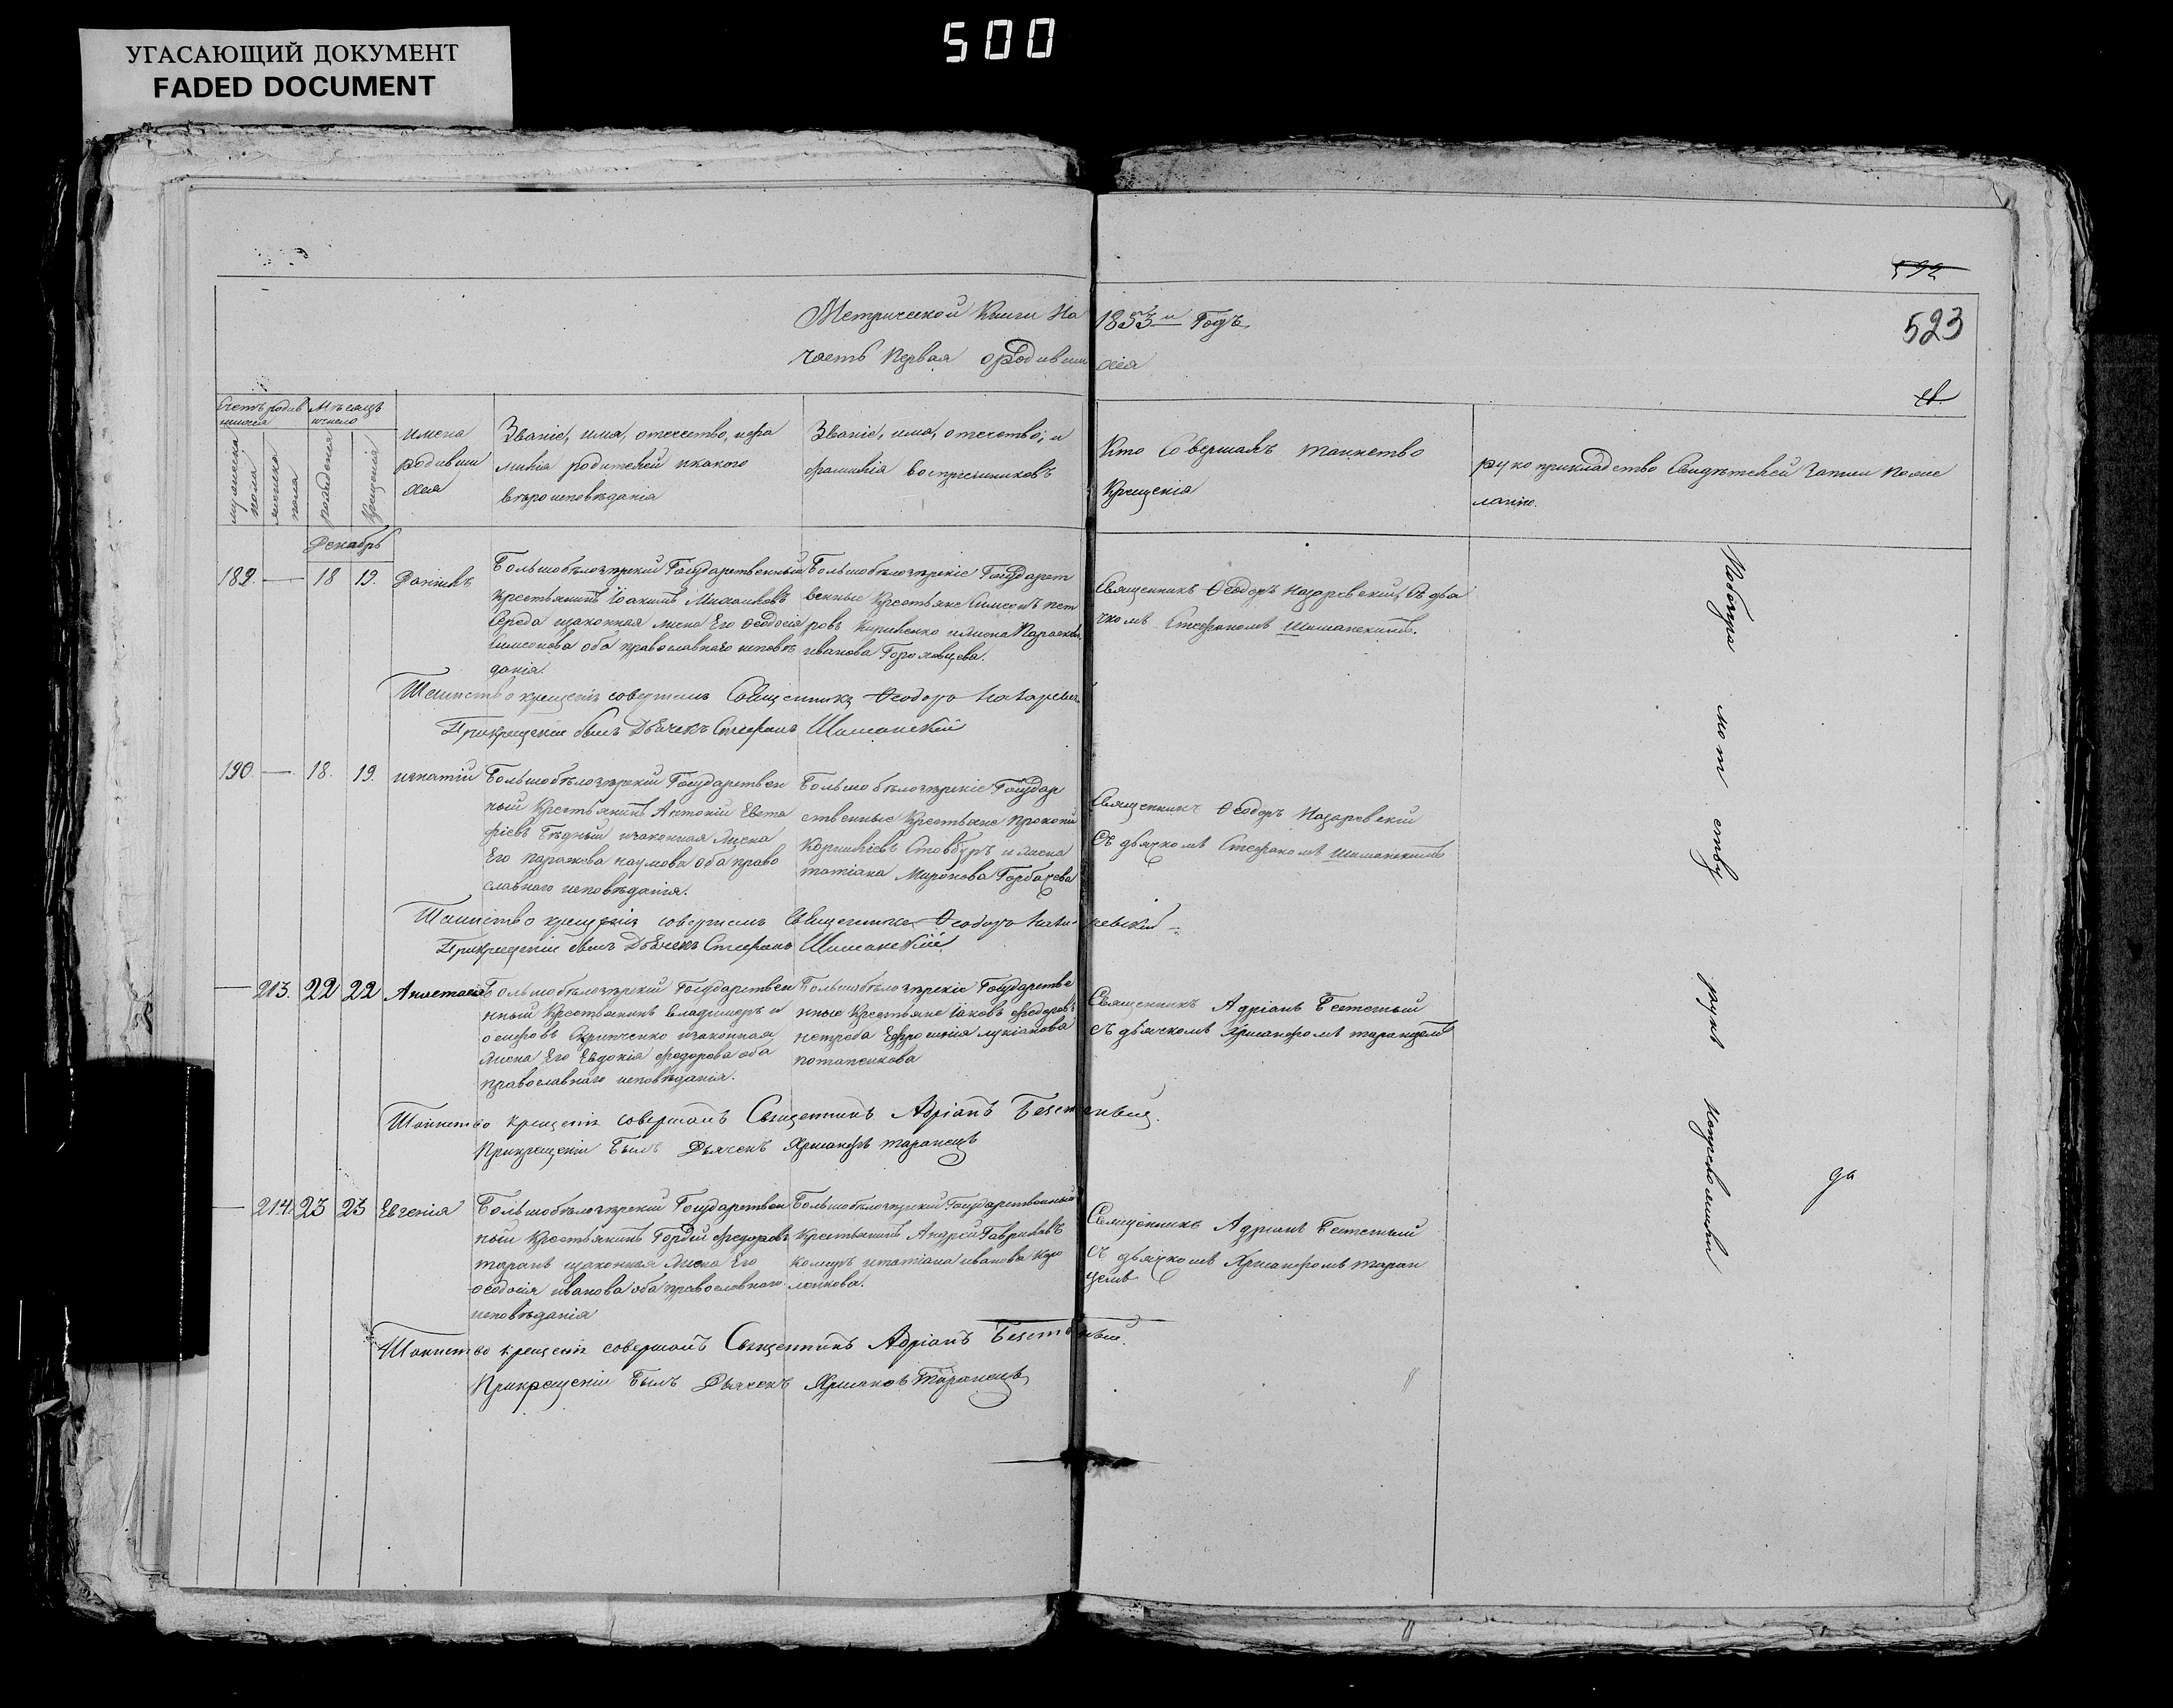 500
УГАСАЮЩИЙ ДОКУМЕНТ
FADED DOCUMENT
592
523
Метрической Книги На 1853й Годъ
часть Первая о Родившихся
Счетъ родившихся
Мѣсяцъ и число
мужеска пола
женска пола
рождения
Крещения
имена родившихся
Званіе, имя, отечество, и фамилія родителей и какого вѣроисповѣданія
Званіе, имя, отечество, и фамилія воспріемниковъ
Кто Совершалъ таинство Крещенія
рукоприкладство Свидѣтелей записи по желанію.
Декабрь
189. — 18 19. Даніилъ
Большобѣлозѣрскій Государственный
Крестьянинъ Іоакимъ Михаиловъ
Середа и законная жена Его Ѳеодосія
Симеонова оба православнаго исповѣ
данія.
Большобѣлозѣрскіе Государст
венные Крестьяне Симеонъ пет
ровъ Кириченко и жена Параскева
иванова Гороховцева.
Священникъ Ѳеодоръ Назаревскій, Съ дья
чкомъ Стефаномъ Шиманскимъ.
Таинство крещенія совершилъ Священникъ Ѳеодоръ Назаревскій
При крещеніи былъ Дьячекъ Стефанъ Шиманскій
190. — 18. 19. игнатій
Большобѣлозѣрскій Государствен
ный Крестьянинъ Антоній Евста
фіевъ Бѣдный и законная жена
Его наумова оба право
славнаго исповѣданія.
Большобѣлозѣрскіе Государ
ственные Крестьяне Прокопій
Корниліевъ Стовбуръ и жена
татіана Миронова Горбачева
Священникъ Ѳеодоръ Назаревскій
Съ дьячкомъ Стефаномъ Шиманскимъ
Таинство крещенія совершилъ Священникъ Ѳеодоръ Назаревскій
При крещеніи былъ Дьячекъ Стефанъ Шиманскій
— 213. 22 22 Анастасія
Большобѣлозѣрскій Государствен
ный Крестьянинъ Владимиръ и
осифовъ Скрипченко и законная
жена Его Евдокія Федорова оба
православнаго исповѣданія.
Большобѣлозѣрскіе Государстве
нные Крестьяне Іаковъ Федоровъ
нетреба Ефросинія лукіанова
потапенкова
Священникъ Адріанъ Безсмѣтный
съ дьячкомъ таранцемъ
Таинство крещенія совершалъ Священникъ Адріанъ
При крещеніи Былъ Дьячекъ таранецъ
— 214. 23 23 Евгенія
Большобѣлозѣрскій Государствен
ный Крестьянинъ Гордій Федоровъ
таранъ и законная жена Его
Ѳеодосія иванова оба православнаго
исповѣданія
Большобѣлозѣрскій Государственный
Крестьянинъ Андрей Гавриловъ
Комаръ и татіана иванова
Священникъ Адріанъ
съ дьячкомъ таран
цемъ
Таинство крещенія совершалъ Священникъ Адріанъ
При крещеніи Былъ Дьячекъ Таранецъ